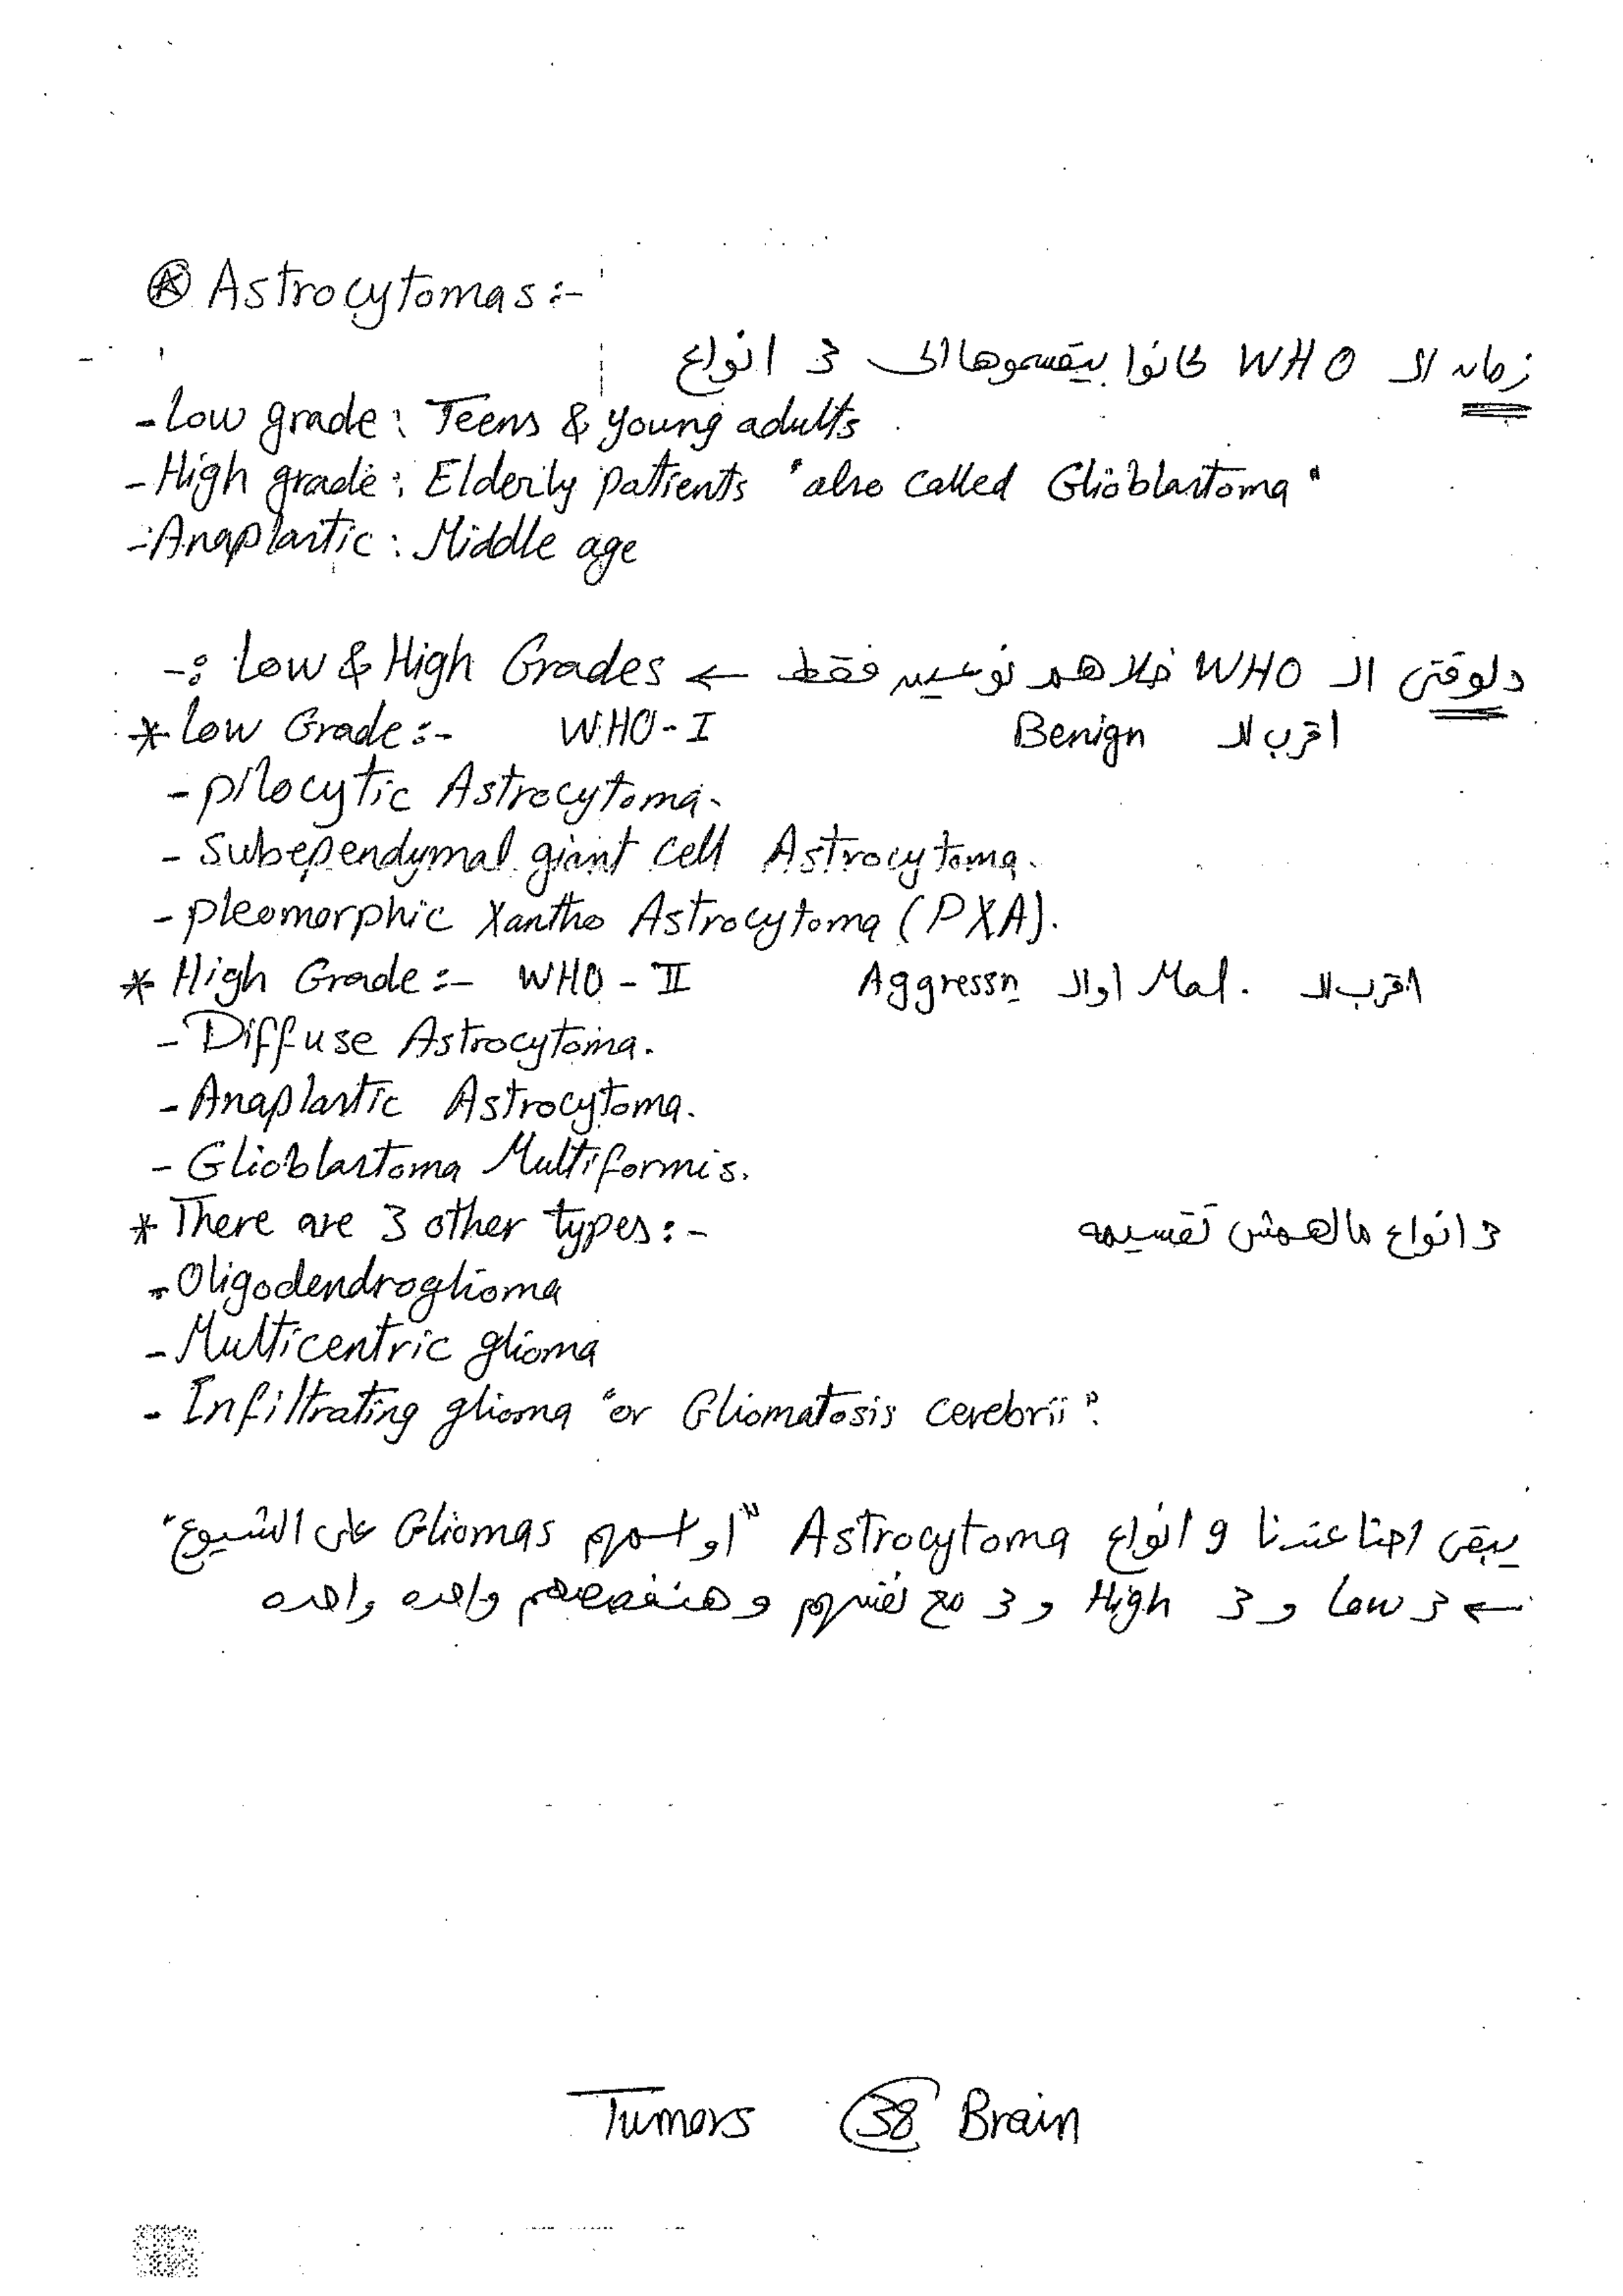 ⊛ Astrocytomas:-
زمان الـ WHO كانوا بيقسموها الى 3 انواع
- Low grade: Teens & young adults
- High grade: Elderily patients "also called Glioblastoma"
- Anaplastic: Middle age
دلوقتى الـ WHO خلاهم نوعين فقط ← Low & High Grades :-
* Low Grade:- WHO-I اقرب للـ Benign
- pilocytic Astrocytoma.
- Subependymal giant cell Astrocytoma.
- pleomorphic Xantho Astrocytoma (PXA).
* High Grade:- WHO-II اقرب للـ Mal. او الـ Aggressn
- Diffuse Astrocytoma.
- Anaplastic Astrocytoma.
- Glioblastoma Multiformis.
* There are 3 other types:- 3 انواع مالهمش تقسيمه
- Oligodendroglioma
- Multicentric glioma
- Infiltrating glioma "or Gliomatosis cerebrii".
يبقى احنا عندنا 9 انواع Astrocytoma "او اسمهم Gliomas على الشيوع"
← 3 Low و 3 High و 3 مع نفسهم و هنفصصهم واحده واحده
Tumors 38 Brain